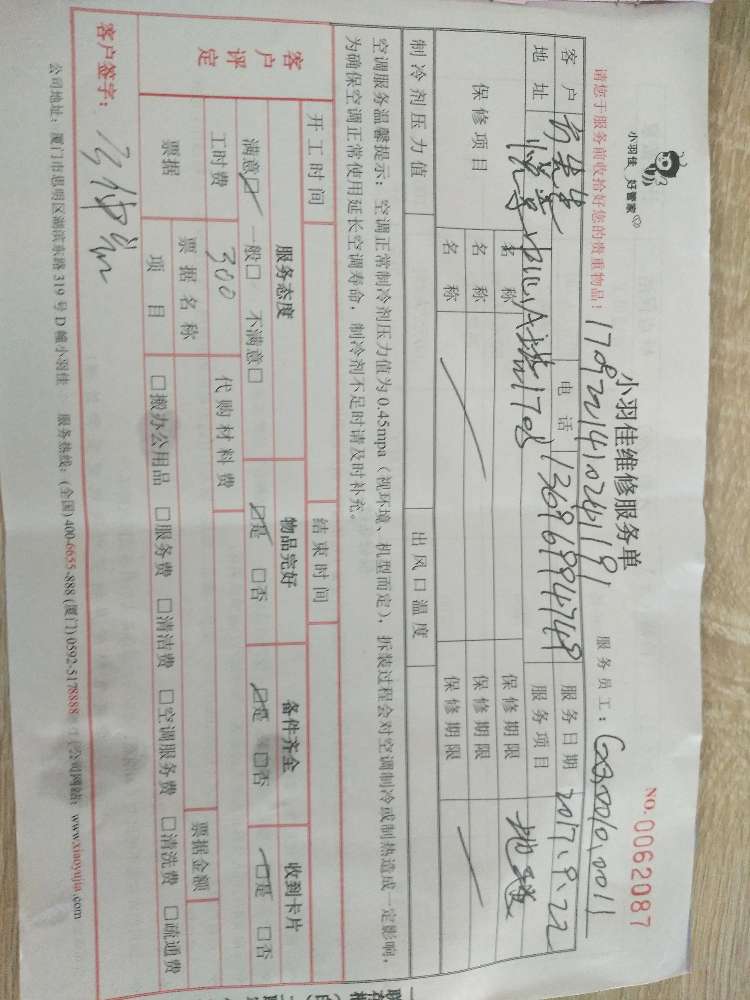 小羽佳 好管家
小羽佳维修服务单
NO.0062087
请您于服务前收拾好您的贵重物品!
服务员工:
客户 电话 13696994749 服务日期 2017.9.22
地址 A 1703 服务项目
保修项目 名称 保修期限
名称 保修期限
名称 保修期限
制冷剂压力值 出风口温度
空调服务温馨提示:空调正常制冷剂压力值为0.45mpa(视环境、机型而定),拆装过程会对空调制冷或制热造成一定影响,
为确保空调正常使用延长空调寿命,制冷剂不足时请及时补充。
开工时间 结束时间
客户评定 服务态度 物品完好 备件齐全 收到卡片
满意☑ 一般□ 不满意□ ☑是 □否 ☑是 □否 ☑是 □否
工时费 300 代购材料费
票据 票据名称 票据金额
项目 □搬办公用品 □服务费 □清洁费 □空调服务费 □清洗费 □疏通费
客户签字:
公司地址:厦门市思明区湖滨东路319号D幢小羽佳 服务热线:(全国)400-6655-888 (厦门)0592-5178888 公司网站:www.xiaoyujia.com